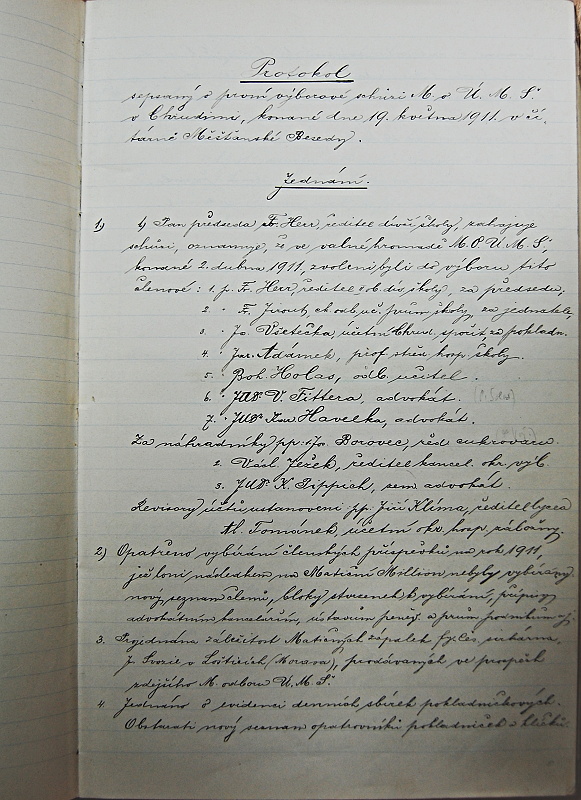 Protokol
sepsaný o první výborové schůzi M. o. Ú. M. Š.
v Chrudimi, konané dne 19. května 1911 v čí-
tárně Měšťanské Besedy.
Jednání.
1) 1) Pan předseda F. Herr, ředitel dívčí školy, zahajuje
schůzi, oznamuje, že ve valné hromadě M. O. Ú. M. Š.
konané 2. dubna 1911, zvoleni byli do výboru tito
členové: 1. p. F. Herr, ředitel ob. dív. školy, za předsedu,
2. " F. Jirout, ob. uč. prům. školy, za jednatele
3. " Jo. Všetečka, účetní Chrud. spořit., za pokladn.
4. " Jar. Adámek, prof. střed. hosp. školy.
5. " Boh. Holas, odb. učitel.
6. " JUDr V. Fittera, advokát.
7. " JUDr Kar Havelka, advokát.
Za náhradníky pp: 1. Jo. Borovec, řed. cukrovaru.
2. Václ. Ježek, ředitel kancel. okr. výb.
3. JUDr K. Pippich, sem. advokát.
Revisory účtů ustanoveni: pp. Jiří Klíma, ředitel lycea
Al. Tománek, účetní okr. hosp. záložny.
2) Opatřeno vybírání členských příspěvků na rok 1911,
jež loni následkem na Matiční Million nebyly vybírány
nový seznam členů, bloky stvrzenek k vybírání, přípisy
advokátním kancelářím, ústavům peněž. a prům. podnikům
3. Projednána záležitost Matičných zápalek fy. Čes. sirkárna
J. Svozil v Lošticích (Morava), prodávaných ve prospěch
zdejšího M. odboru Ú. M. Š.
4. Jednáno o evidenci denních sbírek pokladničkových.
Obstarati nový seznam opatrovníků pokladniček a klíčků.